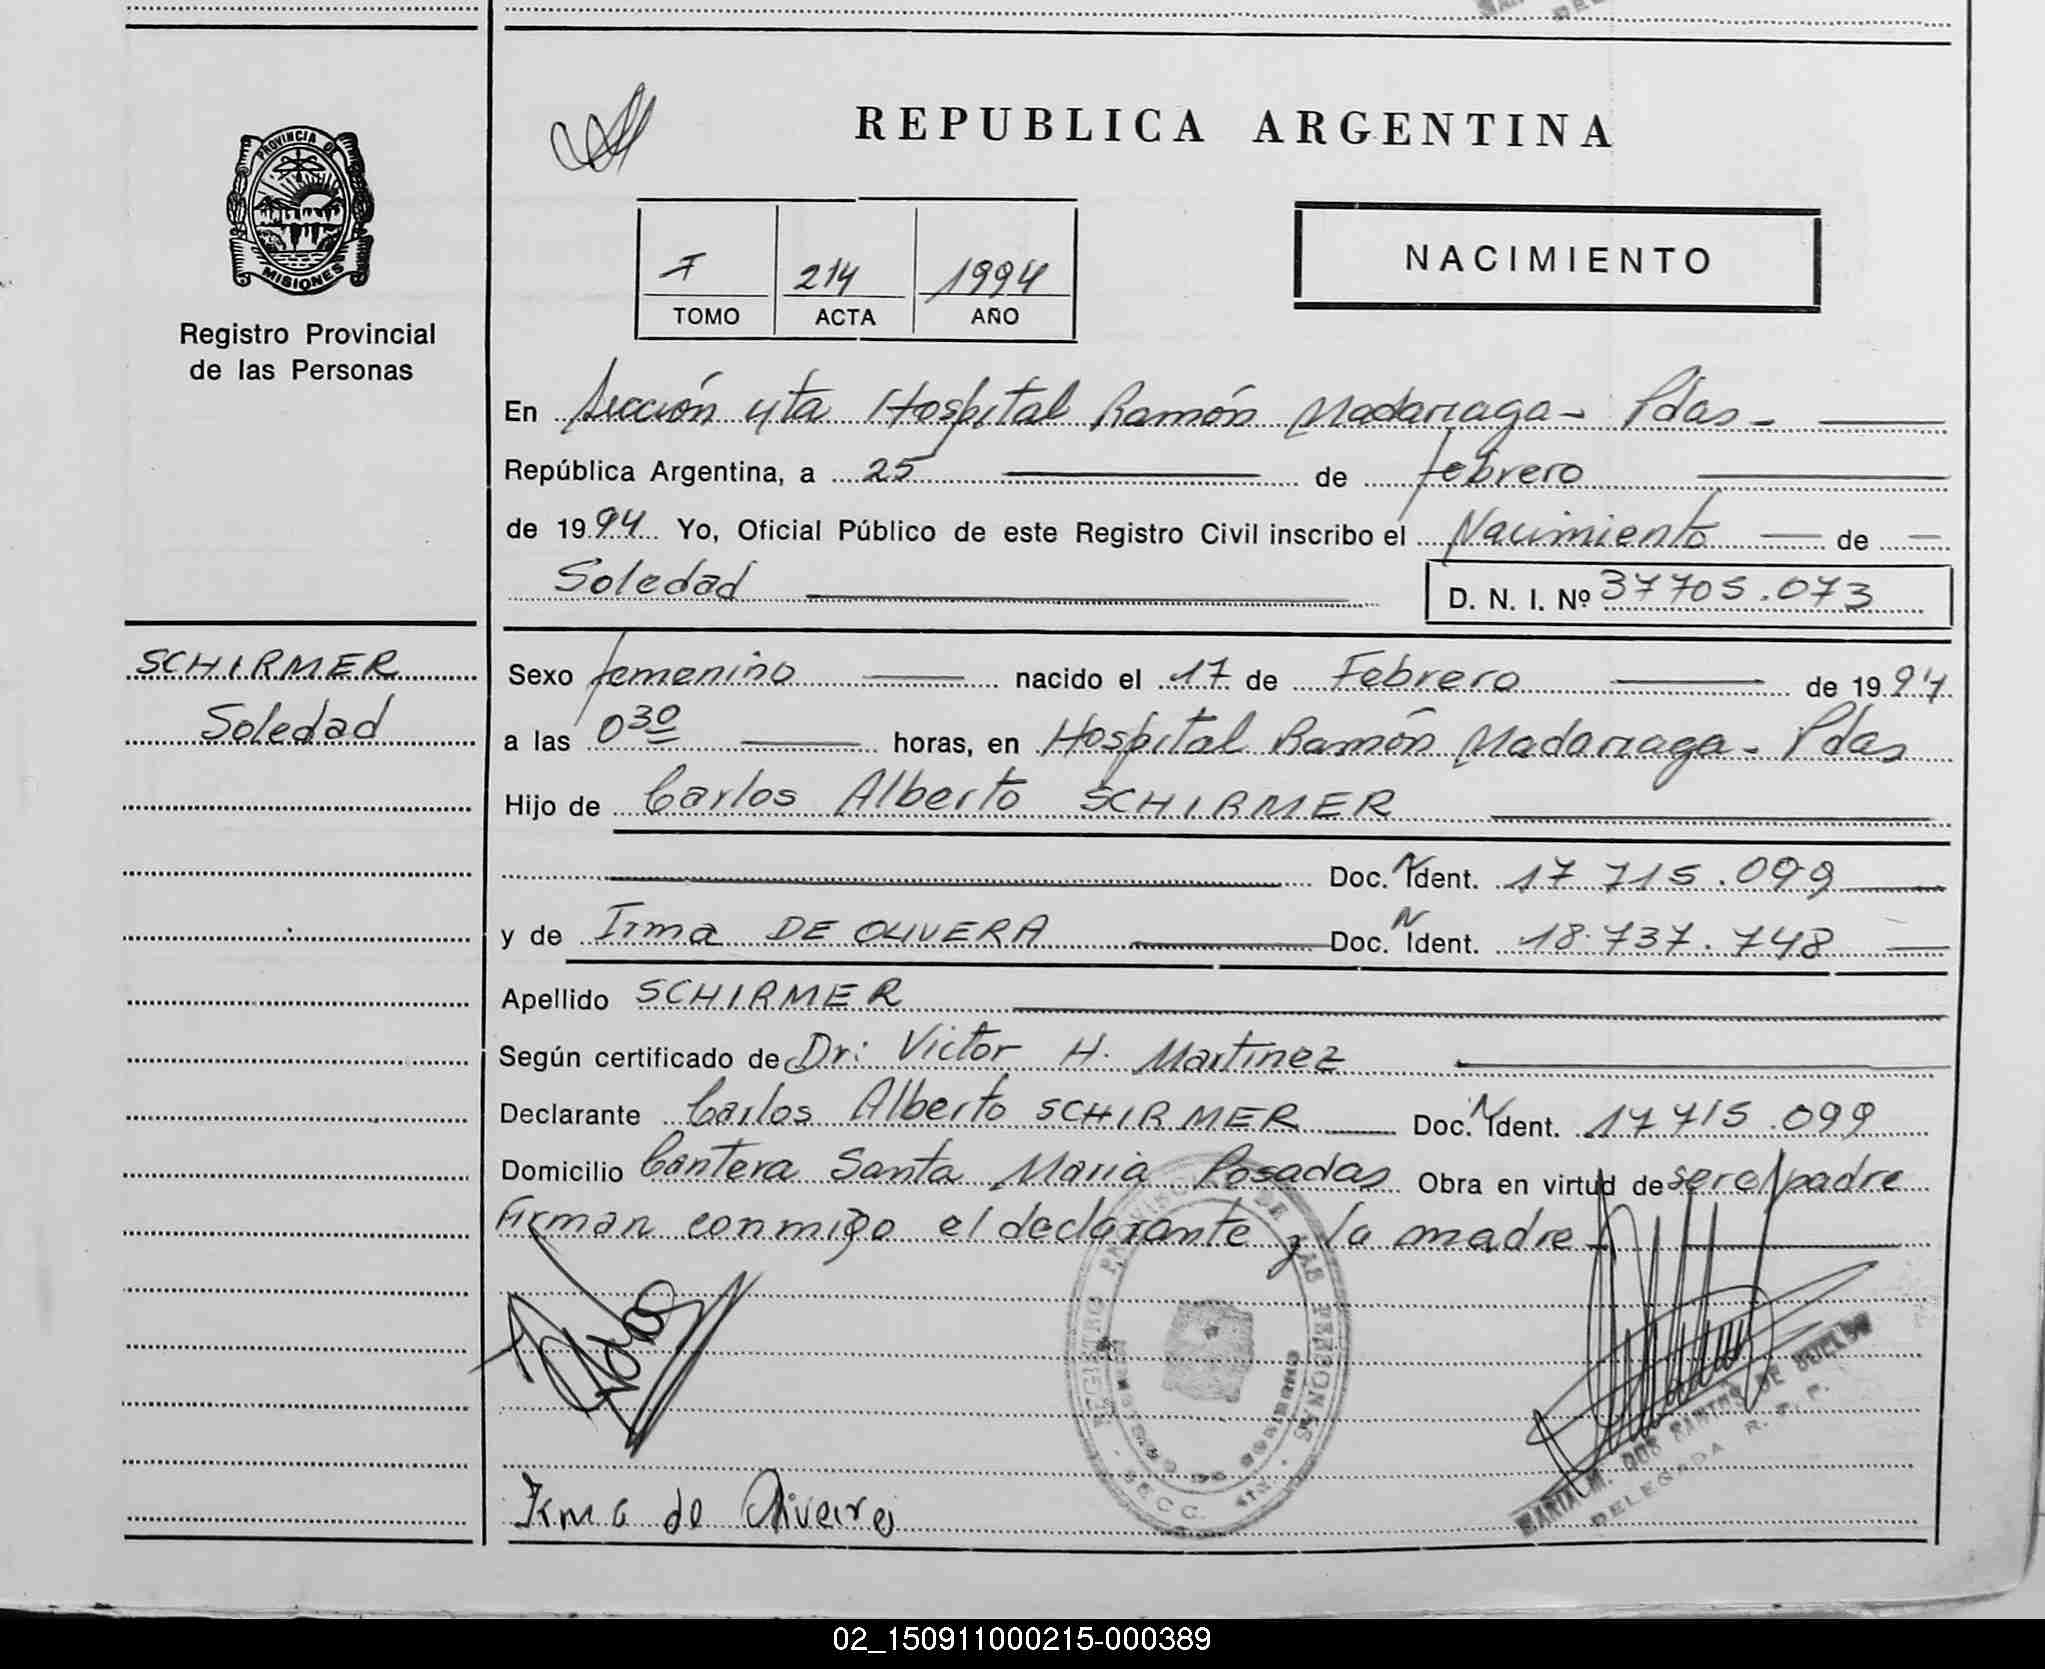 REPUBLICA ARGENTINA
PROVINCIA DE
MISIONES
Registro Provincial
de las Personas
I 214 1994
TOMO ACTA AÑO
NACIMIENTO
En Sección 4ta Hospital Ramón Madariaga - Pdas -
República Argentina, a 25 de febrero
de 1994 Yo, Oficial Público de este Registro Civil inscribo el Nacimiento de
Soledad D. N. I. Nº 37705.073
SCHIRMER
Soledad
Sexo femenino nacido el 17 de Febrero de 1994
a las 0 30 horas, en Hospital Ramón Madariaga - Pdas
Hijo de Carlos Alberto SCHIRMER
Doc. N Ident. 17 715.099
y de Irma DE OLIVERA Doc. N Ident. 18.737.748
Apellido SCHIRMER
Según certificado de Dr: Victor H. Martinez
Declarante Carlos Alberto SCHIRMER Doc. N Ident. 17 715.099
Domicilio Cantera Santa Maria Posadas Obra en virtud de ser el padre
Firman conmigo el declarante y la madre
REGISTRO PROVINCIAL DE LAS PERSONAS
SECC.
MARIA M. DOS SANTOS DE
DELEGADA R. P. P.
Irma de Oliveira
02_150911000215-000389